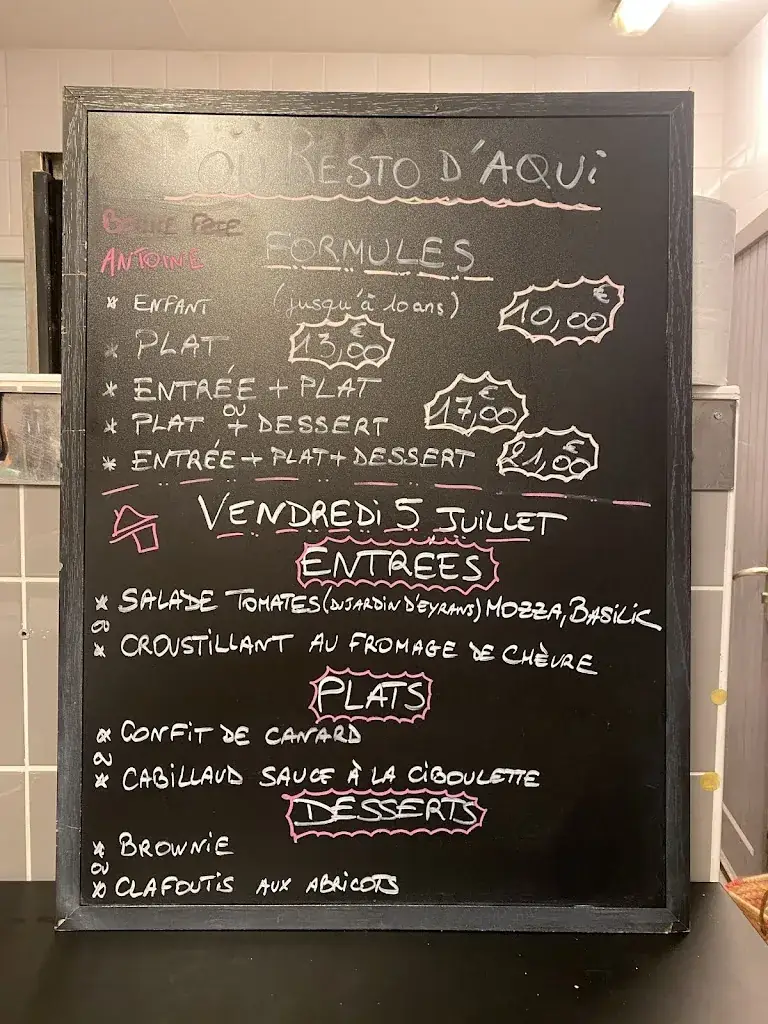 OU RESTO D'AQUi
BONNE FÊTE
ANTOINE
FORMULES
* ENFANT (jusqu'à 10 ans) 10,00€
* PLAT 13,00€
* ENTRÉE + PLAT
OU
17,00€
* PLAT + DESSERT
* ENTRÉE + PLAT + DESSERT 21,00€
VENDREDi 5 JUiLLET
ENTREES
* SALADE TOMATES (DU JARDIN D'EYRANS) MOZZA, BASILIC
OU
* CROUSTILLANT AU FROMAGE DE CHÈVRE
PLATS
* CONFiT DE CANARD
OU
* CABILLAUD SAUCE À LA CIBOULETTE
DESSERTS
* BROWNiE
OU
* CLAFOUTiS AUX ABRiCOTS